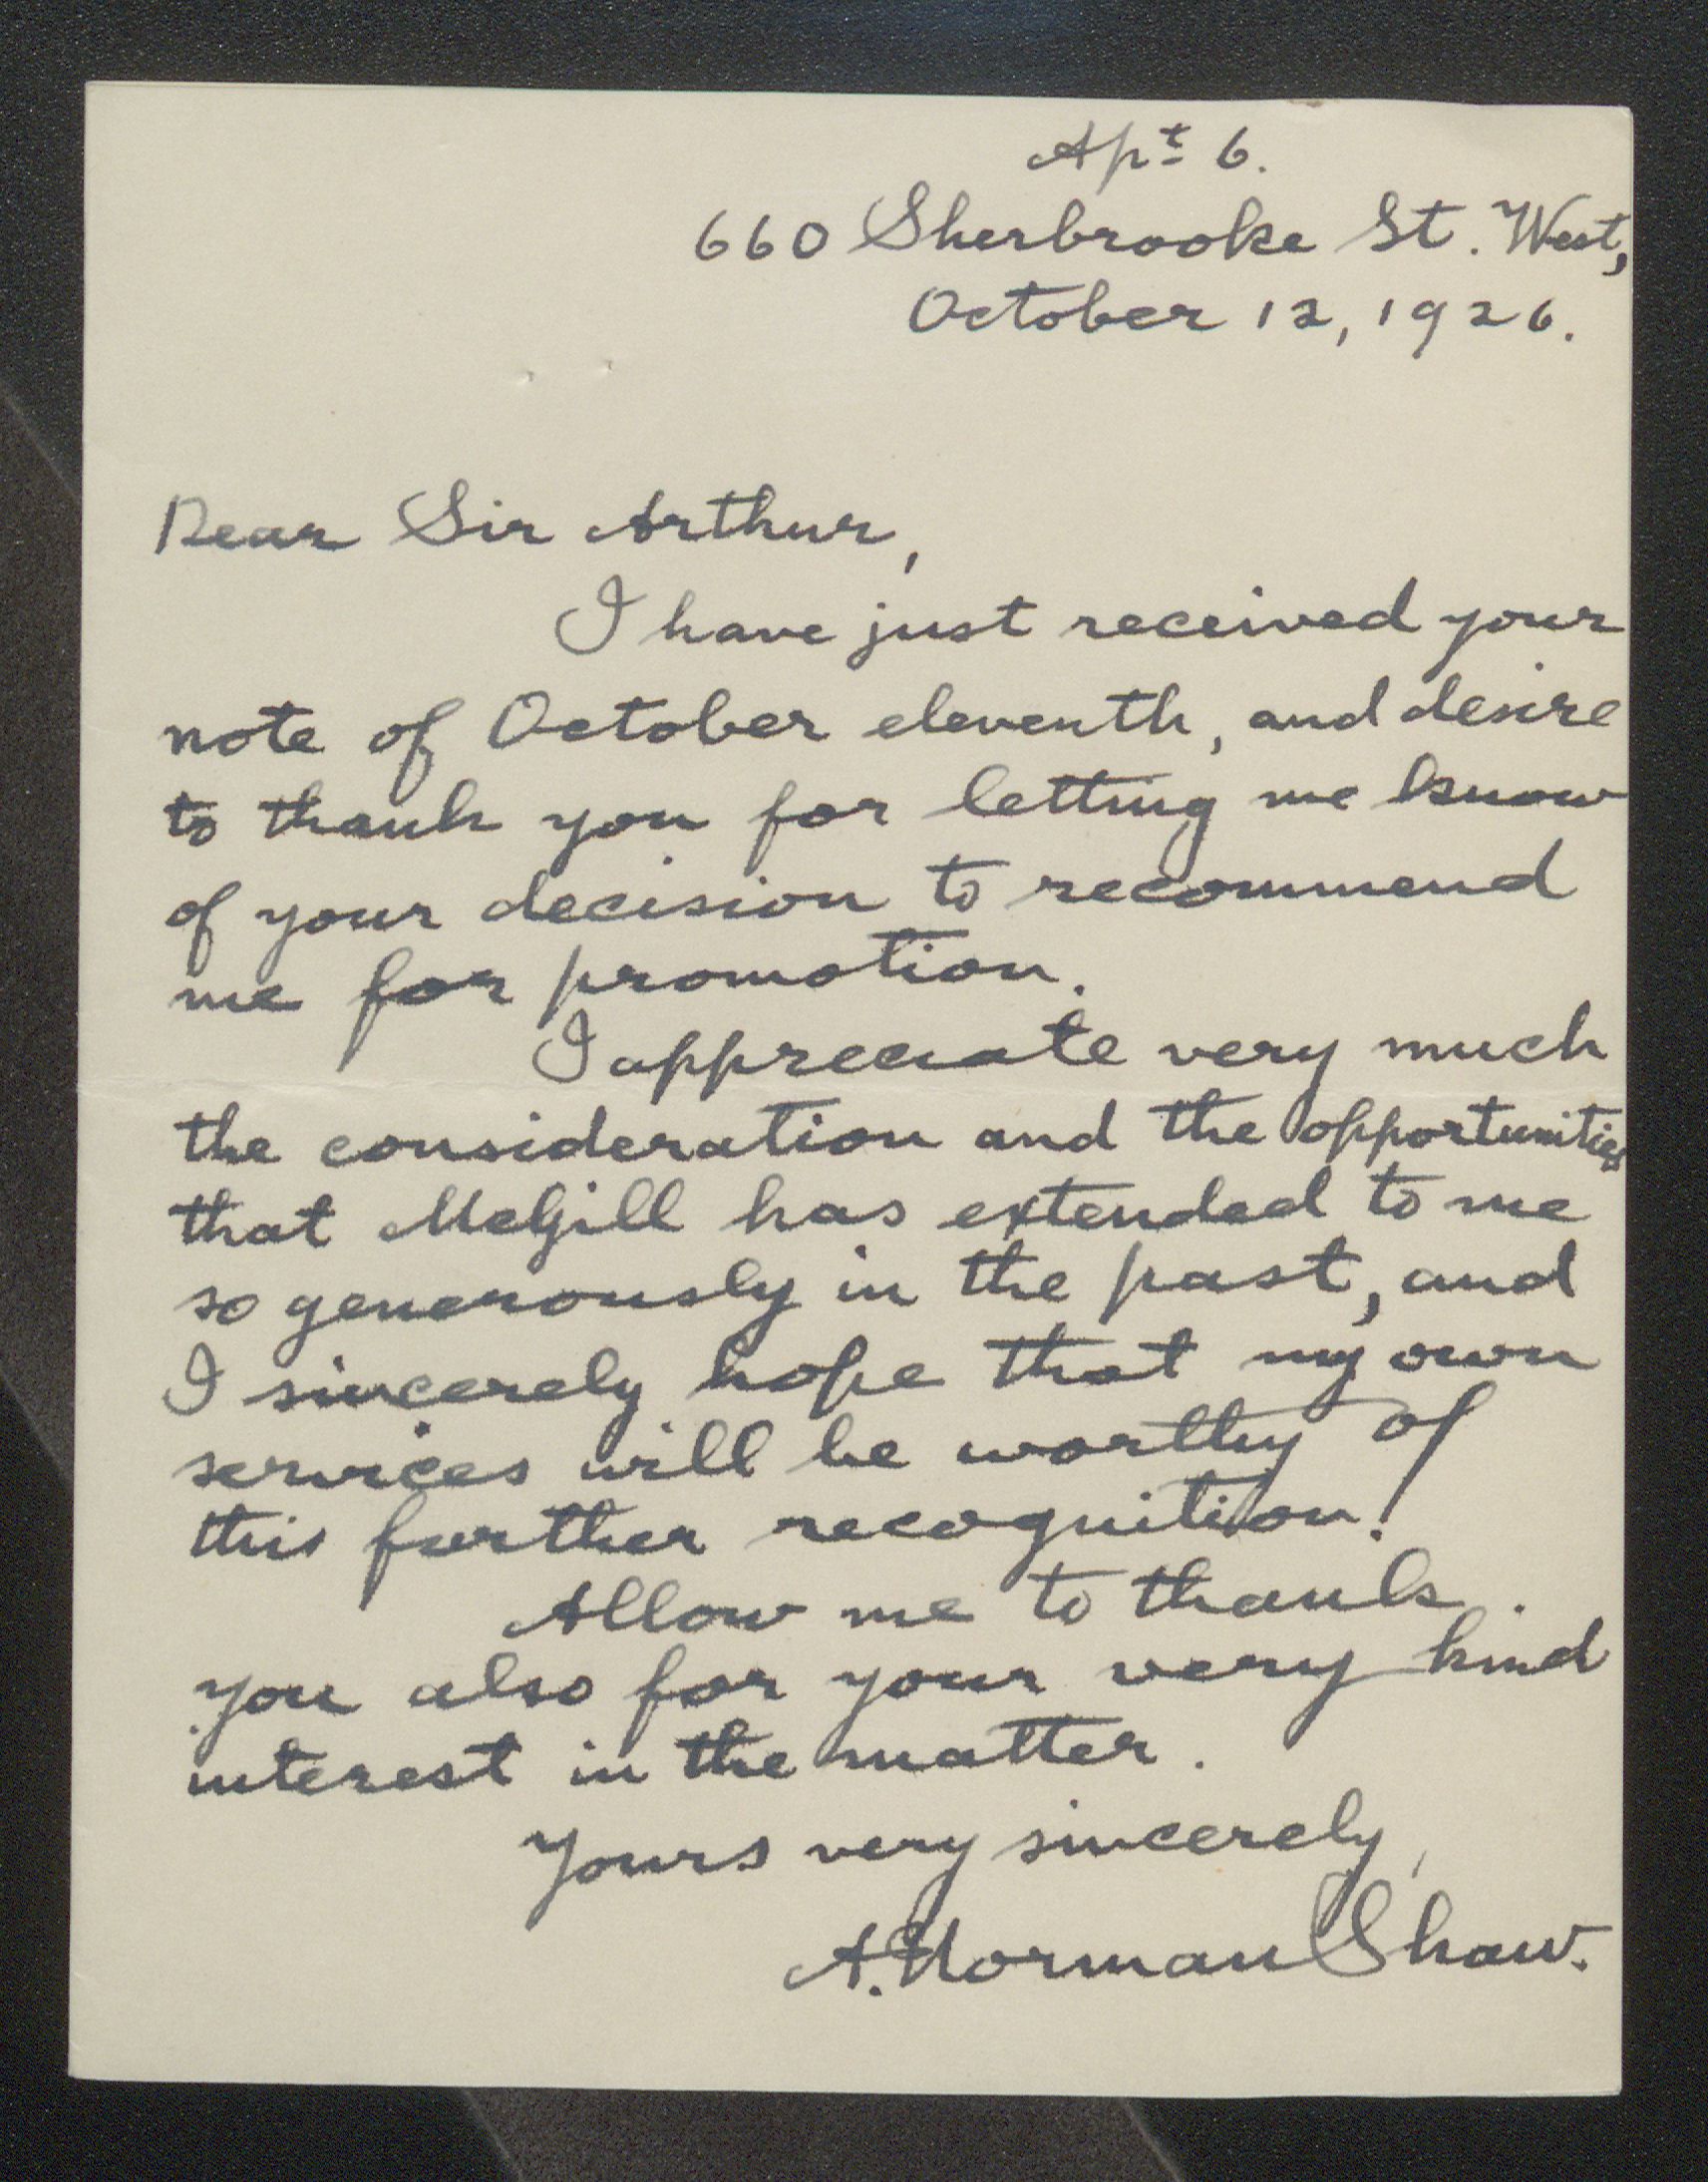 Apt 6.
660 Sherbrooke St. West,
October 12, 1926.
Dear Sir Arthur,
I have just received your
note of October eleventh, and desire
to thank you for letting me know
of your decision to recommend
me for promotion.
I appreciate very much
the consideration and the opportunities
that McGill has extended to me
so generously in the past, and
I sincerely hope that my own
services will be worthy of
this further recognition!
Allow me to thank
you also for your very kind
interest in the matter.
Yours very sincerely,
A. Norman Shaw.